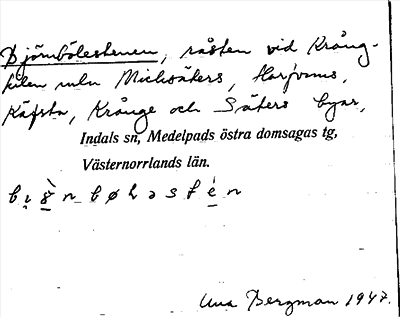 Björnbölestenen, råsten vid Krång-
kilen meln Michsäters, Harfroms,
Käfsta, Krånge och Säters byar,
Indals sn, Medelpads östra domsagas tg,
Västernorrlands län.
Una Bergman 1947.